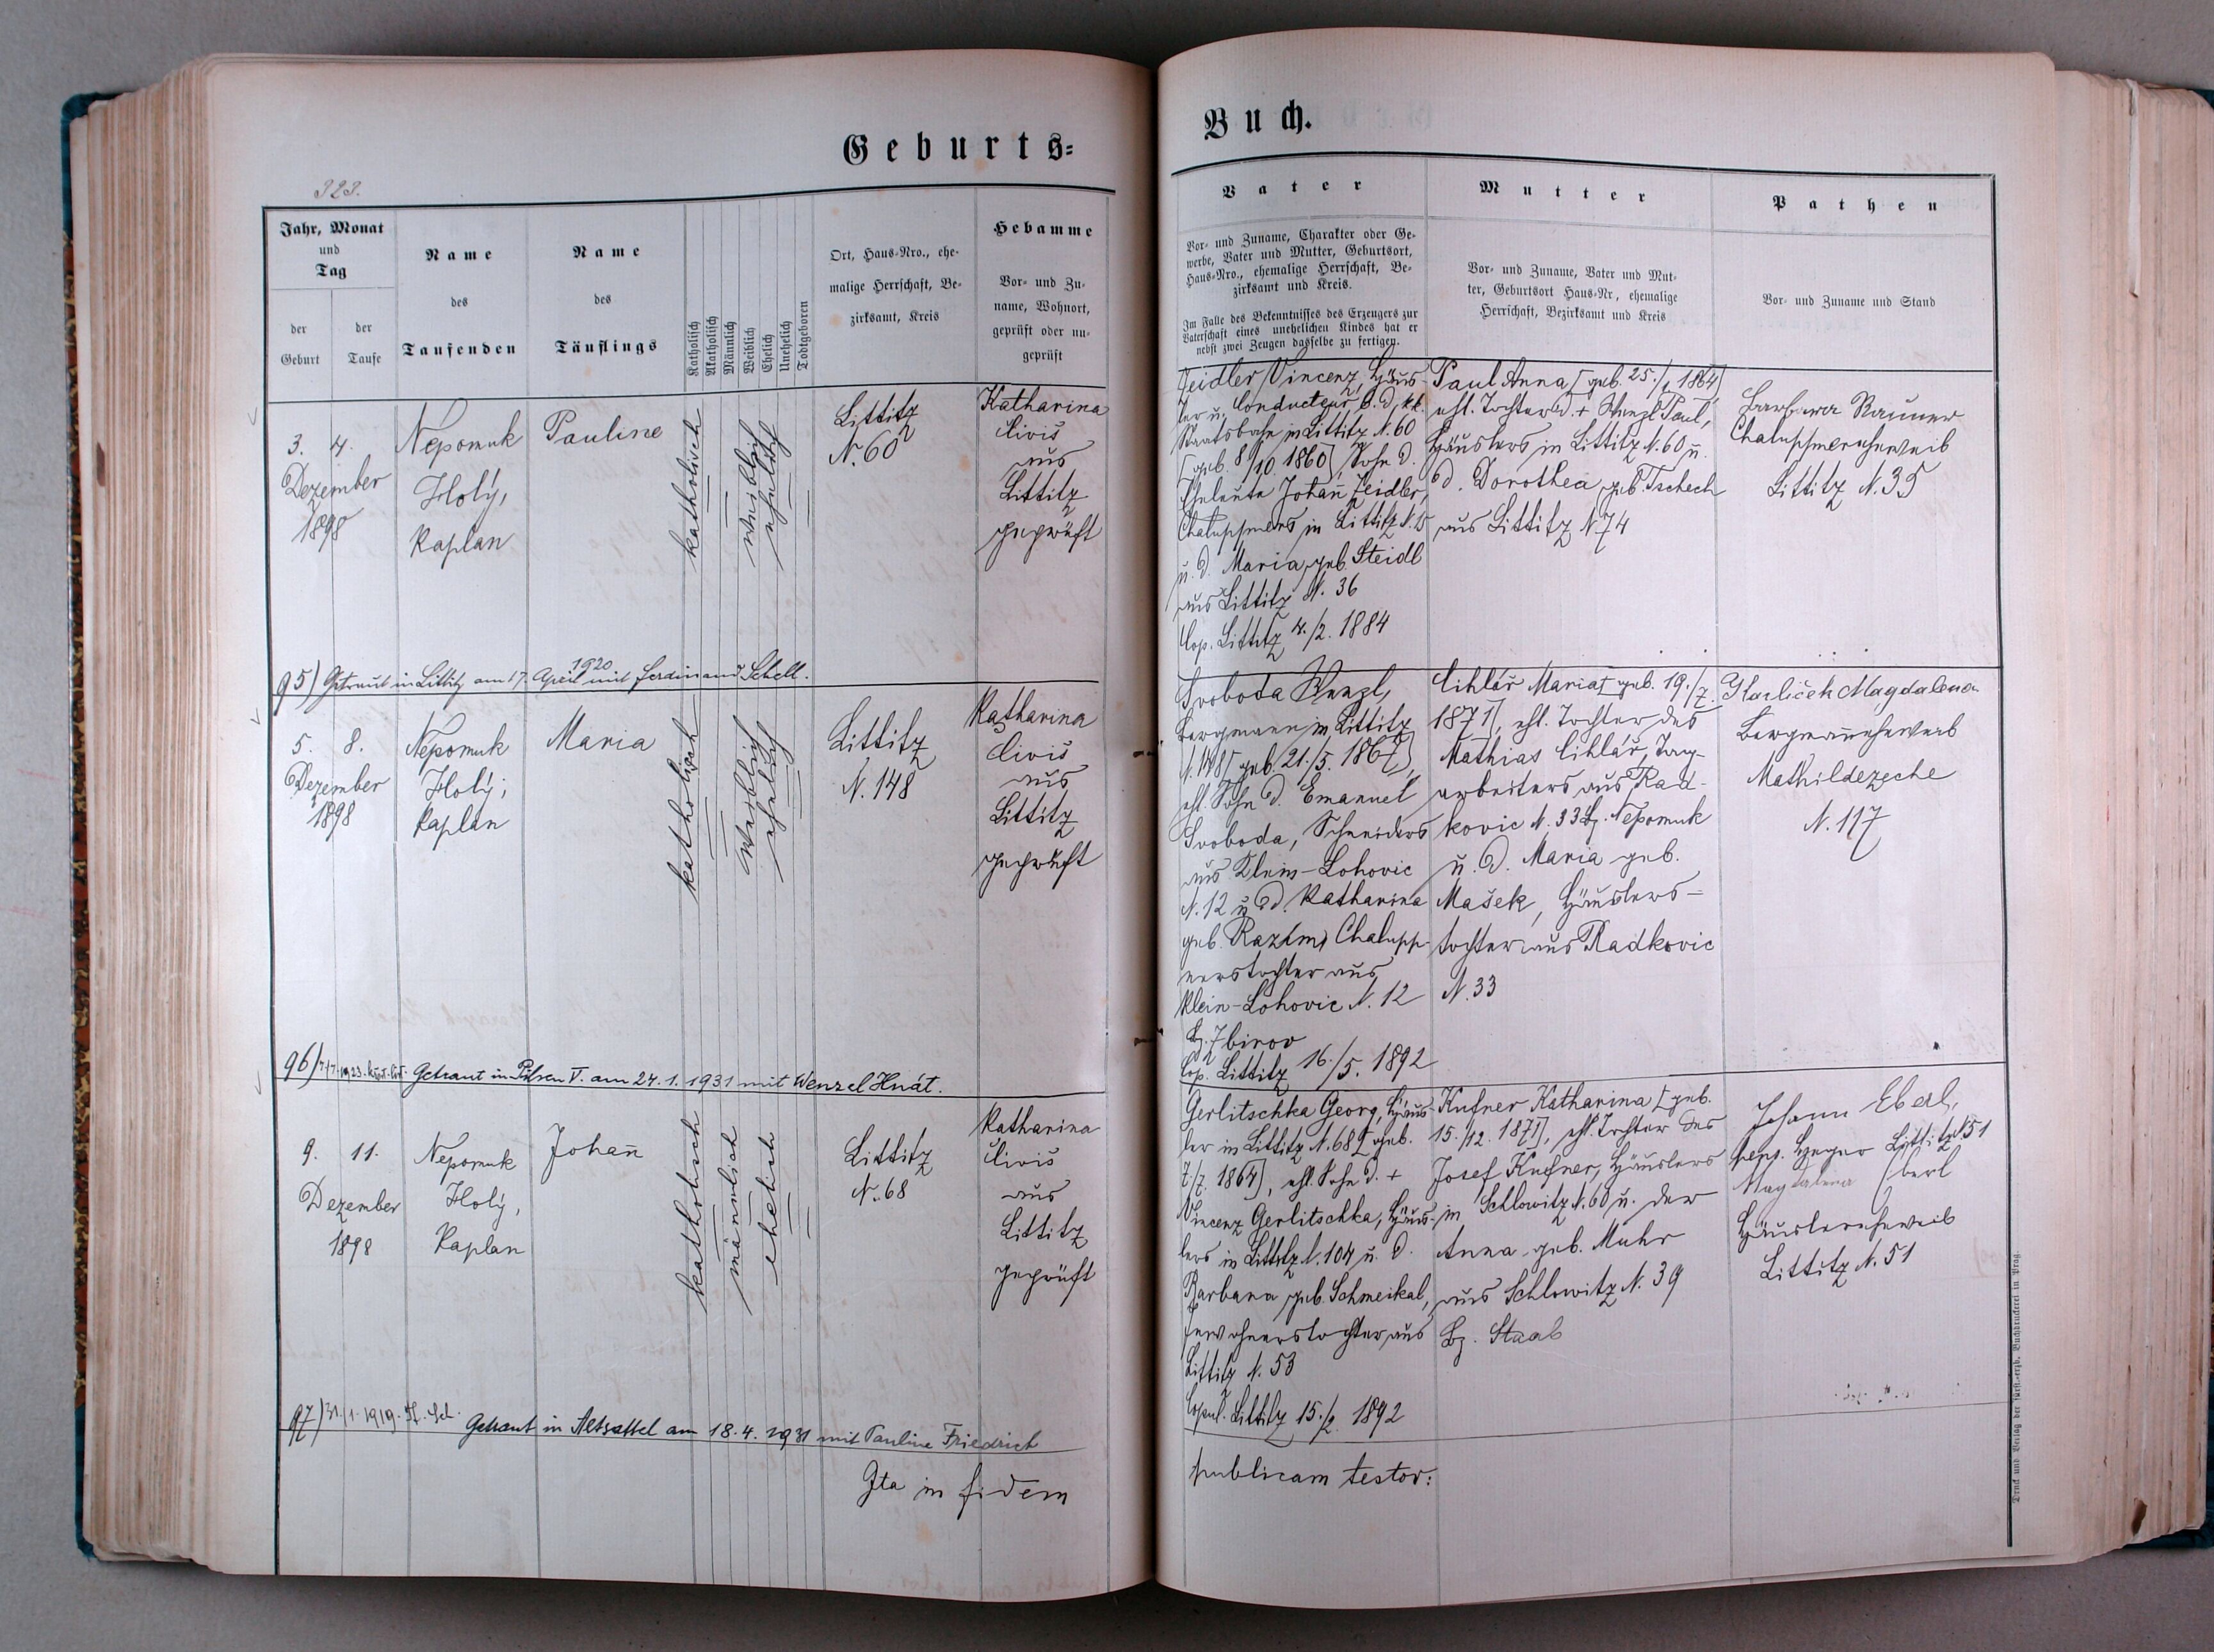 Geburts=
323.
Jahr, Monat
und
Tag
der
Geburt
der
Taufe
Name
des
Taufenden
Name
des
Täuflings
Katholisch
Akatholisch
Männlich
Weiblich
Ehelich
Unehelich
Todtgeboren
Ort, Haus=Nro., ehe-
malige Herrschaft, Be-
zirksamt, Kreis
Hebamme
Vor= und Zu-
name, Wohnort,
geprüft oder un-
geprüft
3. 4.
Dezember
1898
Nepomuk
Holý,
Kaplan
Pauline
katholisch
weiblich
ehelich
Littitz
N. 60
Katharina
Civiš
aus
Littitz
geprüft
95) Getraut in Littitz am 17. April 1920 mit Ferdinand Schell.
5. 8.
Dezember
1898
Nepomuk
Holý,
Kaplan
Maria
katholisch
weiblich
ehelich
Littitz
N. 148
Katharina
Civiš
aus
Littitz
geprüft
96) Getraut in Pilsen V. am 24.1.1931 mit Wenzel Hnát.
9. 11.
Dezember
1898
Nepomuk
Holý,
Kaplan
Johañ
katholisch
männlich
ehelich
Littitz
N. 68
Katharina
Civiš
aus
Littitz
geprüft
97) 31/1. 1919. Getraut in Altsattel am 18.4.1931 mit Pauline Friedrich
Ita in fidem
Buch.
Vater
Vor= und Zuname, Charakter oder Ge-
werbe, Vater und Mutter, Geburtsort,
Haus=Nro., ehemalige Herrschaft, Be-
zirksamt und Kreis.
Im Falle des Bekenntnisses des Erzeugers zur
Vaterschaft eines unehelichen Kindes hat er
nebst zwei Zeugen dasselbe zu fertigen.
Mutter
Vor= und Zuname, Vater und Mut-
ter, Geburtsort Haus=Nr, ehemalige
Herrschaft, Bezirksamt und Kreis
Pathen
Vor= und Zuname und Stand
Zeidler Vincenz, Häus-
ler u. Conducteur b. d. kk.
Staatsbahn in Littitz N. 60
[geb. 8/10. 1860], Sohn d.
Eheleute Johañ Zeidler,
Chaluppners in Littitz N. 15
u. d. Maria, geb. Steidl
aus Littitz N. 36
Cop. Littitz 4./2. 1884
Paul Anna [geb. 25./1. 1864]
ehl. Tochter d. + Wenzl Paul,
Häuslers in Littitz N. 60 u.
d. Dorothea geb. Tschech
aus Littitz N 74
Barbara Rauner
Chaluppnerseheweib
Littitz N. 35
Svoboda Wenzl,
Bergmann in Littitz
N. 148 [geb. 21./5. 1867],
ehl. Sohn d. Emanuel
Svoboda, Schneiders
aus Klein-Lohovic
N. 12 u. d. Katharina
geb. Chalupp-
nerstochter aus
Klein-Lohovic N. 12
Bz. Zbirov
Cop. Littitz 16./5. 1892
Cihlář Maria [geb. 19./7.
1871], ehl. Tochter des
Mathias Cihlář, Tag-
arbeiters aus Rad-
kovic N. 33 Bz. Nepomuk
u. d. Maria geb.
Mašek, Häuslers-
tochter aus Radkovic
N. 33
Havlíček Magdalena
Bergmañseheweib
Mathildezeche
N. 117
Gerlitschka Georg, Häus-
ler in Littitz N. 68 [geb.
7./7. 1864], ehl. Sohn d. +
Vincenz Gerlitschka, Häus-
lers in Littitz N. 104 u. d.
Barbara geb. Schmeikal,
Inwohnerstochter aus
Littitz N. 53
Copul. Littitz 15./2. 1892
Kufner Katharina [geb.
15./12. 1871], ehl. Tochter des
Josef Kufner, Häuslers
in Schlowitz N. 60 u. der
Anna geb. Muhr
aus Schlowitz N. 39
Bz. Staab
Johann Eberl,
Heger Littitz N 51
Magdalena Eberl
Häuslerseheweib
Littitz N. 51
publicam testor:
Druck und Verlag der fürst.-erzb. Buchdruckerei in Prag.